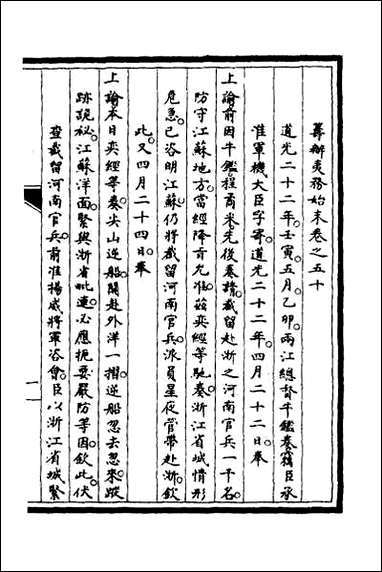 籌辦夷務始末卷之五十
道光二十二年壬寅五月乙卯兩江總督牛鑑奏竊臣承
准軍機大臣字寄道光二十二年四月二十二日奉
上諭前因牛鑑程矞采先後奏請截留赴浙之河南官兵一千名
防守江蘇地方當經降旨允准茲奕經等馳奏浙江省城情形
危急已咨明江蘇仍將截留河南官兵派員星夜管帶赴浙欽
此又四月二十四日奉
上諭本日奕經等奏尖山逆船開赴外洋一摺逆船忽去忽來蹤
跡詭秘江蘇洋面緊與浙省毗連必應扼要嚴防等因欽此伏
查截留河南官兵前准揚威將軍咨會臣以浙江省城緊
一